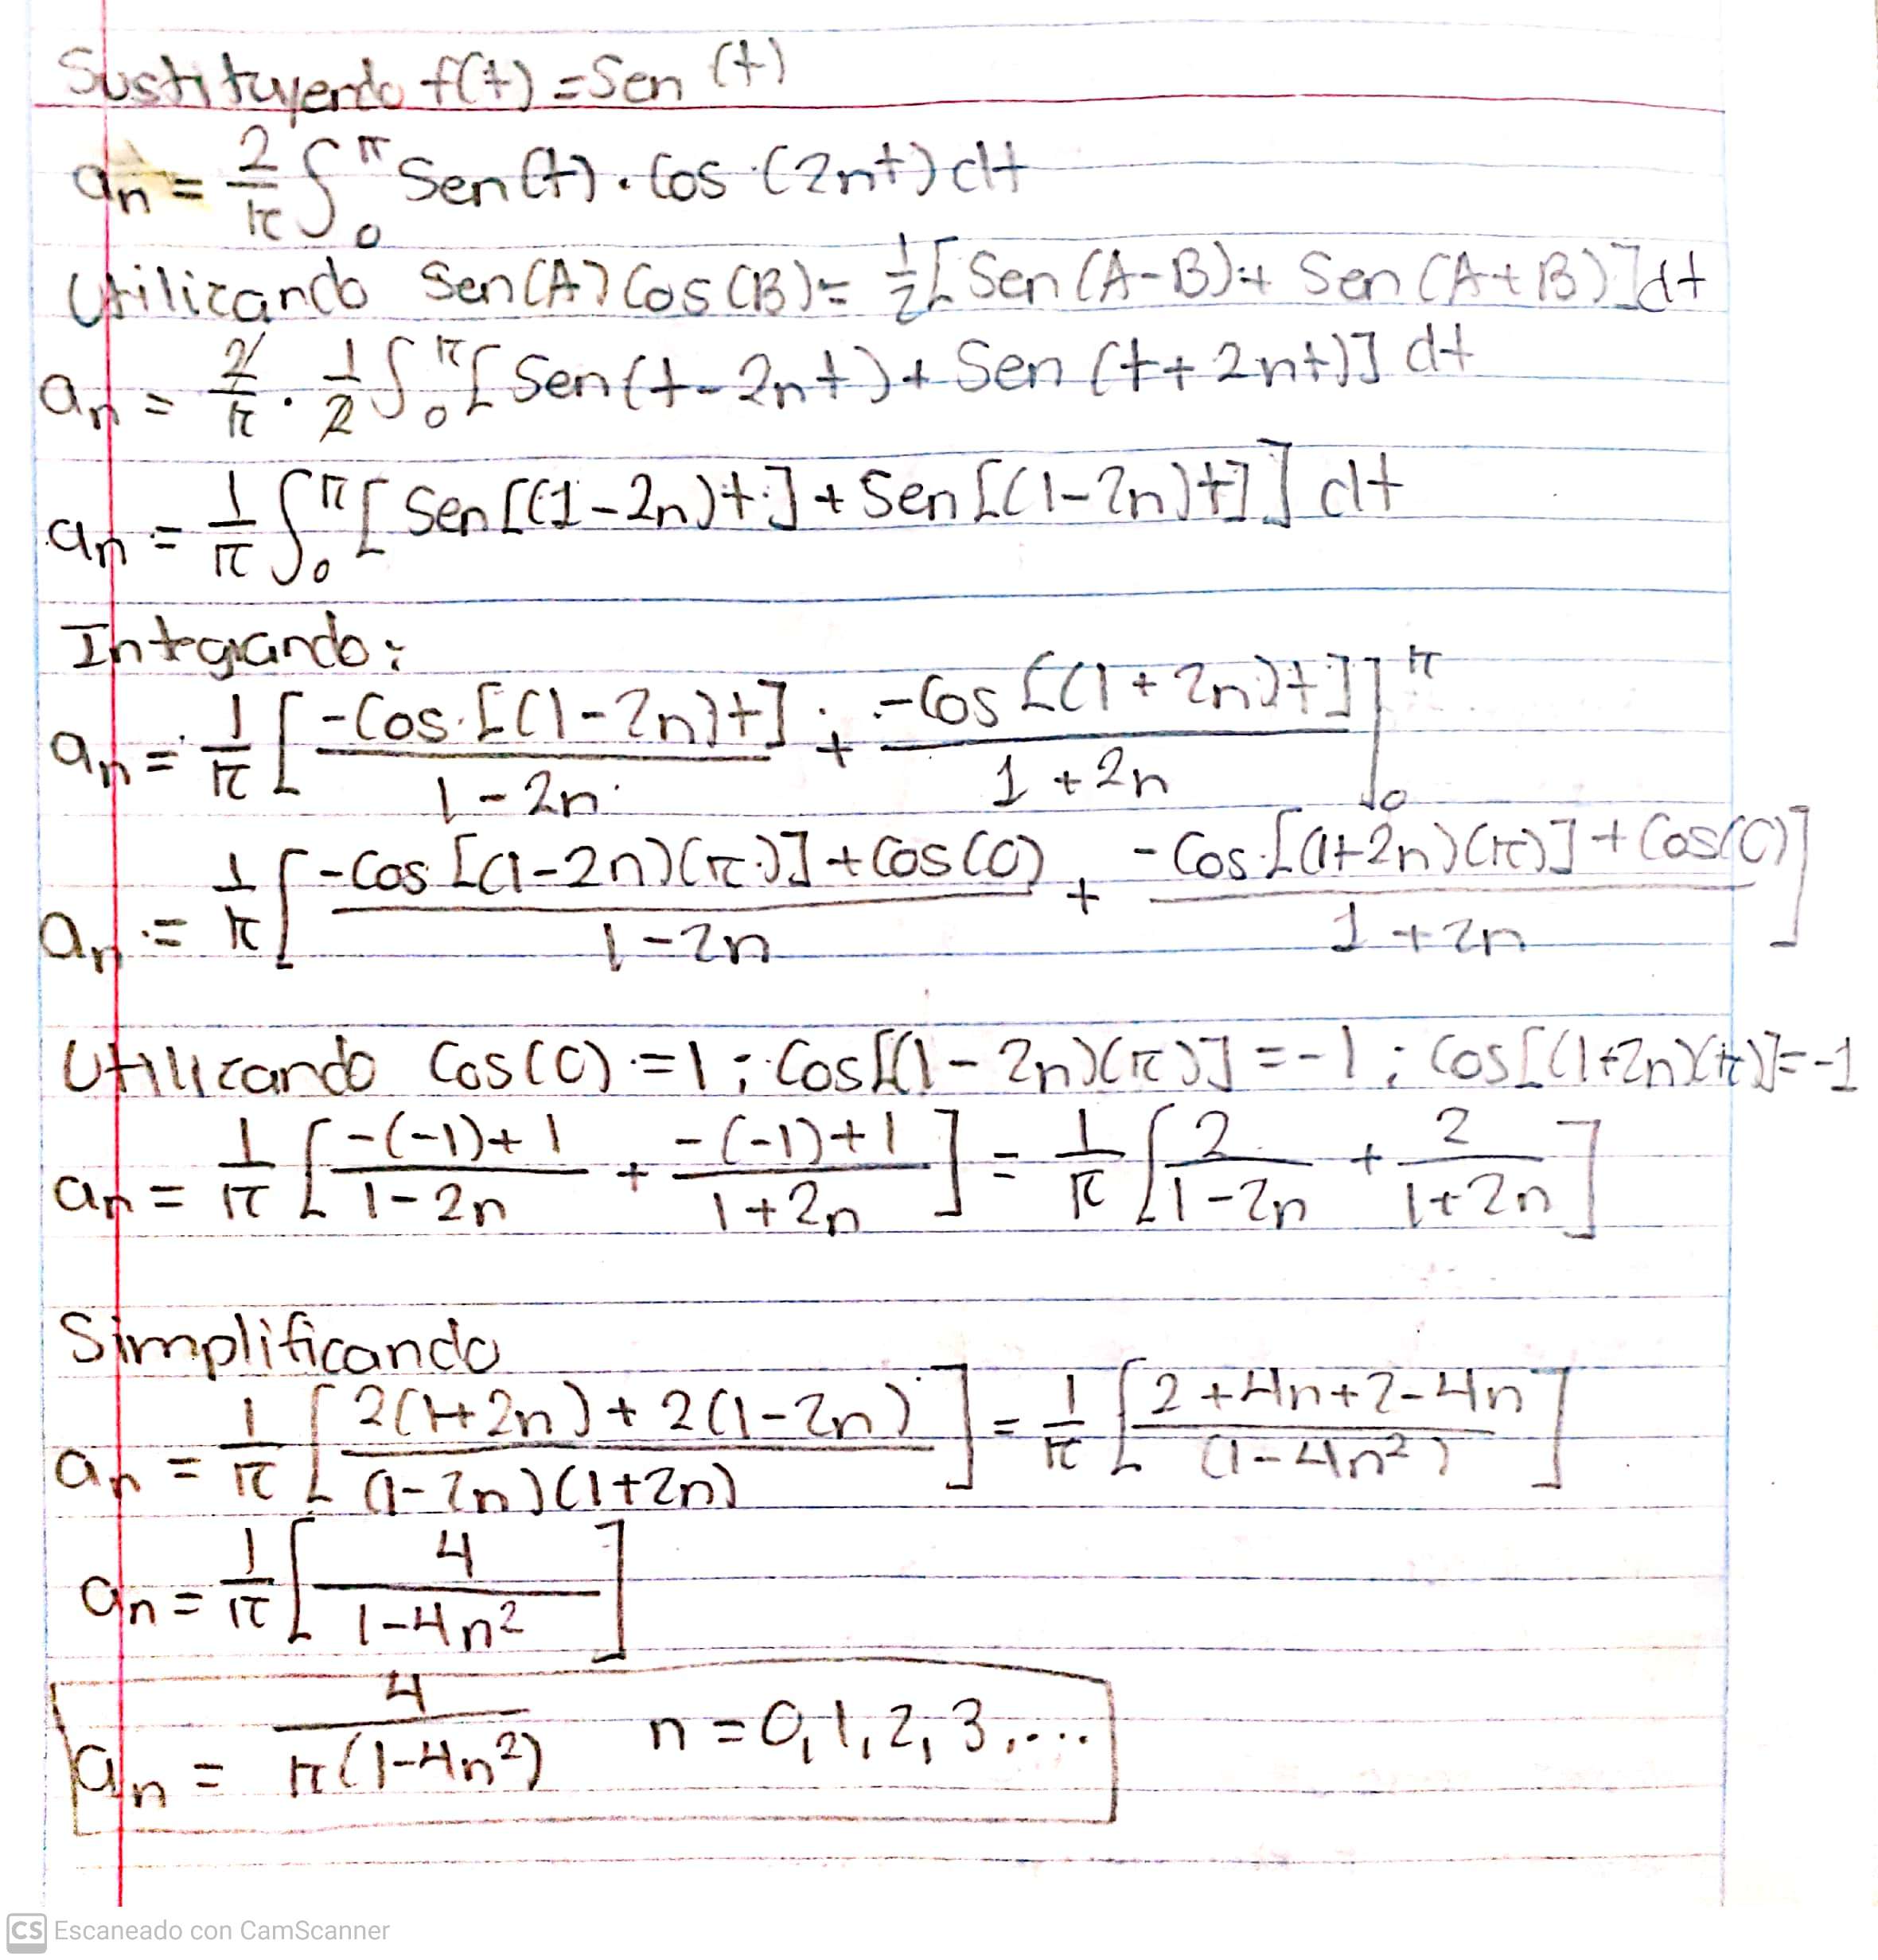 Sustituyendo f(t) = Sen (t)
an = 2/π ∫₀^π Sen(t) · Cos (2nt) dt
Utilizando Sen(A) Cos(B) = 1/2 [Sen (A-B) + Sen (A+B)] dt
an = 2/π · 1/2 ∫₀^π [Sen(t-2nt) + Sen (t+2nt)] dt
an = 1/π ∫₀^π [Sen[(1-2n)t] + Sen[(1-2n)t]] dt
Integrando:
an = 1/π [ -Cos[(1-2n)t] / 1-2n + -Cos[(1+2n)t] / 1+2n ]₀^π
an = 1/π [ -Cos[(1-2n)(π)] + Cos(0) / 1-2n + -Cos[(1+2n)(π)] + Cos(0) / 1+2n ]
Utilizando Cos(0) = 1 ; Cos[(1-2n)(π)] = -1 ; Cos[(1+2n)(π)] = -1
an = 1/π [ -(-1)+1 / 1-2n + -(-1)+1 / 1+2n ] = 1/π [ 2 / 1-2n + 2 / 1+2n ]
Simplificando
an = 1/π [ 2(1+2n) + 2(1-2n) / (1-2n)(1+2n) ] = 1/π [ 2+4n+2-4n / (1-4n²) ]
an = 1/π [ 4 / 1-4n² ]
an = 4 / π(1-4n²) n = 0, 1, 2, 3, ...
CS Escaneado con CamScanner